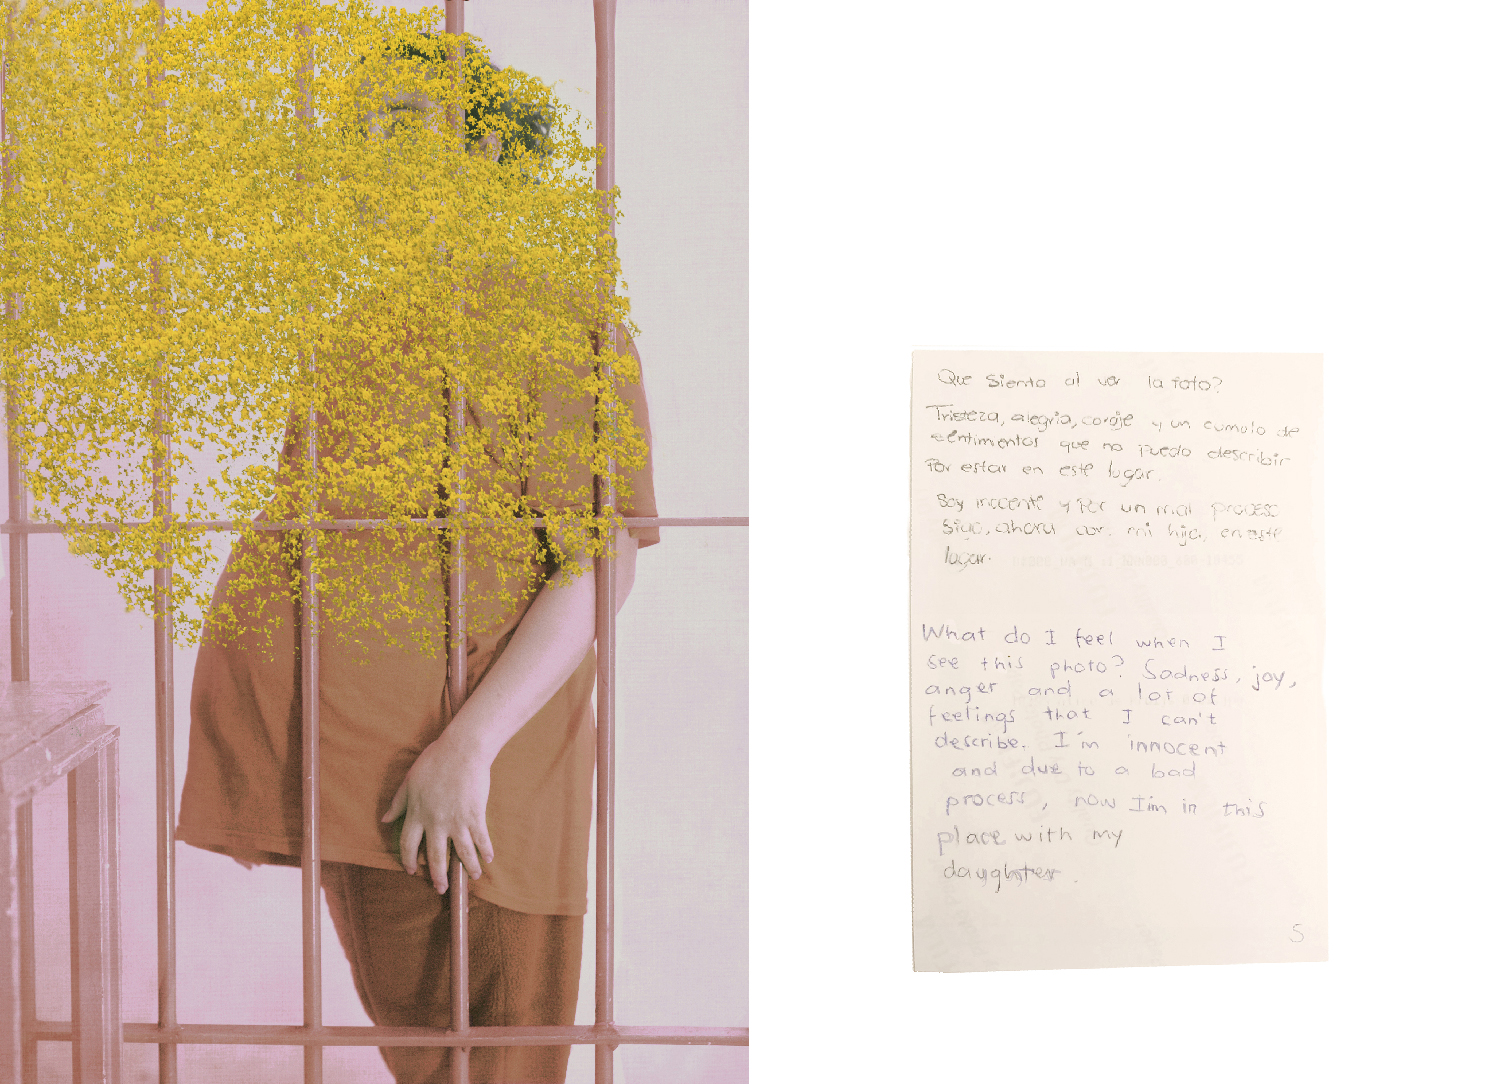 Que Siento al ver la foto?
Tristeza, alegria, coraje y un cumulo de
sentimentos que no Puedo describir
Por estar en este lugar.
Soy inocente y Por un mal proceso
Sigo, ahora con mi hija, en este
lugar.
What do I feel when I
see this photo? Sadness, joy,
anger and a lot of
feelings that I can't
describe. I'm innocent
and due to a bad
process, now I'm in this
place with my
daughter.
S